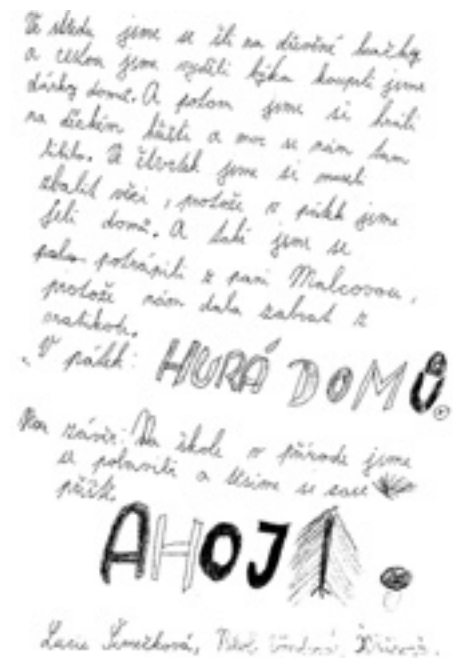 Ve středu jsme se šli na dřevěné kuličky
a cestou jsme viděli býka koupili jsme
dárky domů. A potom jsme si hráli
na dětském hřišti a moc se nám tam
líbilo. Ve čtvrtek jsme si museli
sbalit věci, protože v pátek jsme
jeli domů. A také jsme se
potrápili z paní Malcovou,
protože nám dala zabrat z
matikou.
V pátek: HURÁ DOMŮ
Na závěr: Na škole v přírodě jsme
se pobavili a těšíme se zase
příště.
AHOJ!
Lucie Šimečková,